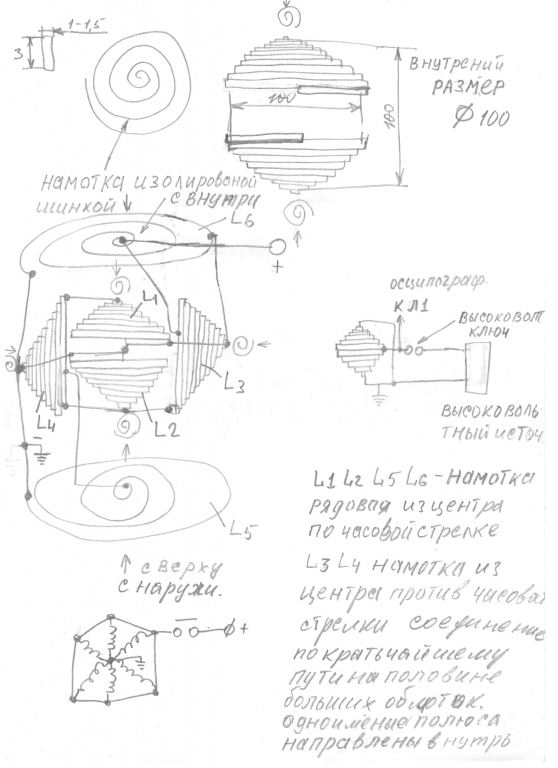 1-1,5
3
100
100
Внутрений
РАЗМЕР
Ф 100
НАМОТКА ИЗОЛИРОВАНОЙ
ШИНКОЙ
С ВНУТРИ
L6
+
L1
L4
L3
L2
ОСЦИЛОГРАФ.
КЛ1
ВЫСОКОВОЛТ
КЛЮЧ
ВЫСОКОВОЛЬ
ТНЫЙ ИСТОЧ.
L5
L1 L2 L5 L6 - НАМОТКА
РЯДОВАЯ ИЗ ЦЕНТРА
ПО ЧАСОВОЙ СТРЕЛКЕ
L3 L4 НАМОТКА ИЗ
ЦЕНТРА ПРОТИВ ЧАСОВОЙ
СТРЕЛКИ СОЕДИНЕНИЕ
ПО КРАТЬЧАЙШЕМУ
ПУТИ НА ПОЛОВИНЕ
БОЛЬШИХ ОБМОТОК.
ОДНОИМЕНЫЕ ПОЛЮСА
НАПРАВЛЕНЫ В НУТРЬ
С ВЕРХУ
С НАРУЖИ.
+